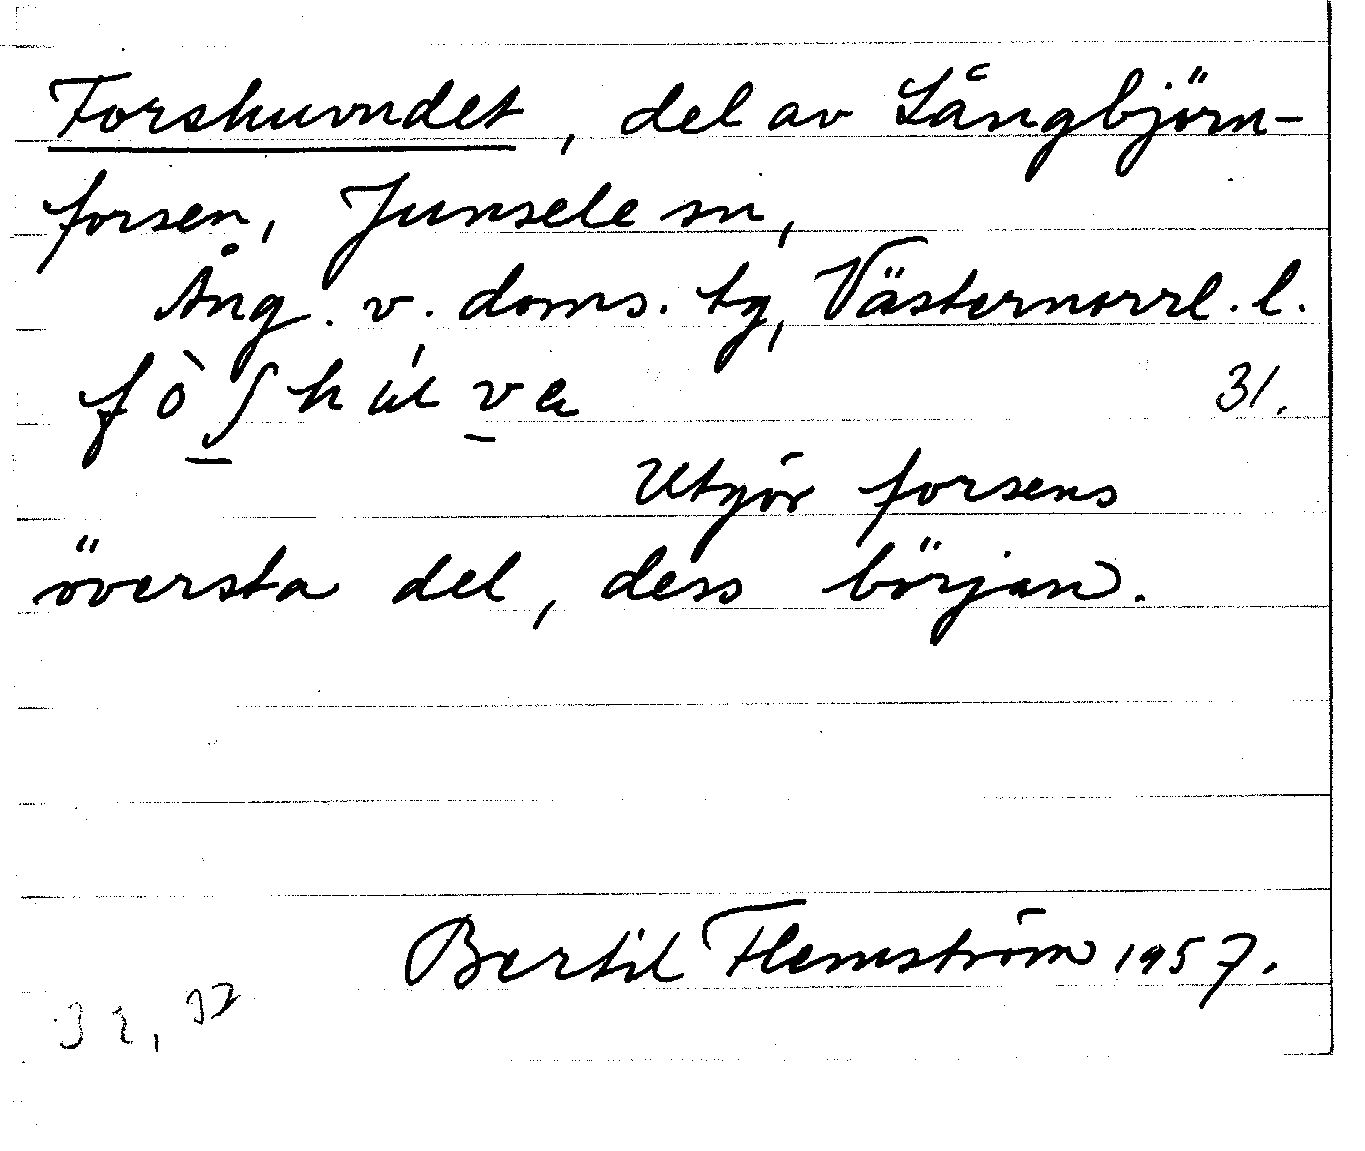 Forshuvudet, del av Långbjörn-
forsen, Junsele sn,
Ång. v. doms. tg, Västernorrl. l.
fò̱ʃhúv̱a 31.
Utgör forsens
översta del, dess början.
Bertil Flemström 1957.